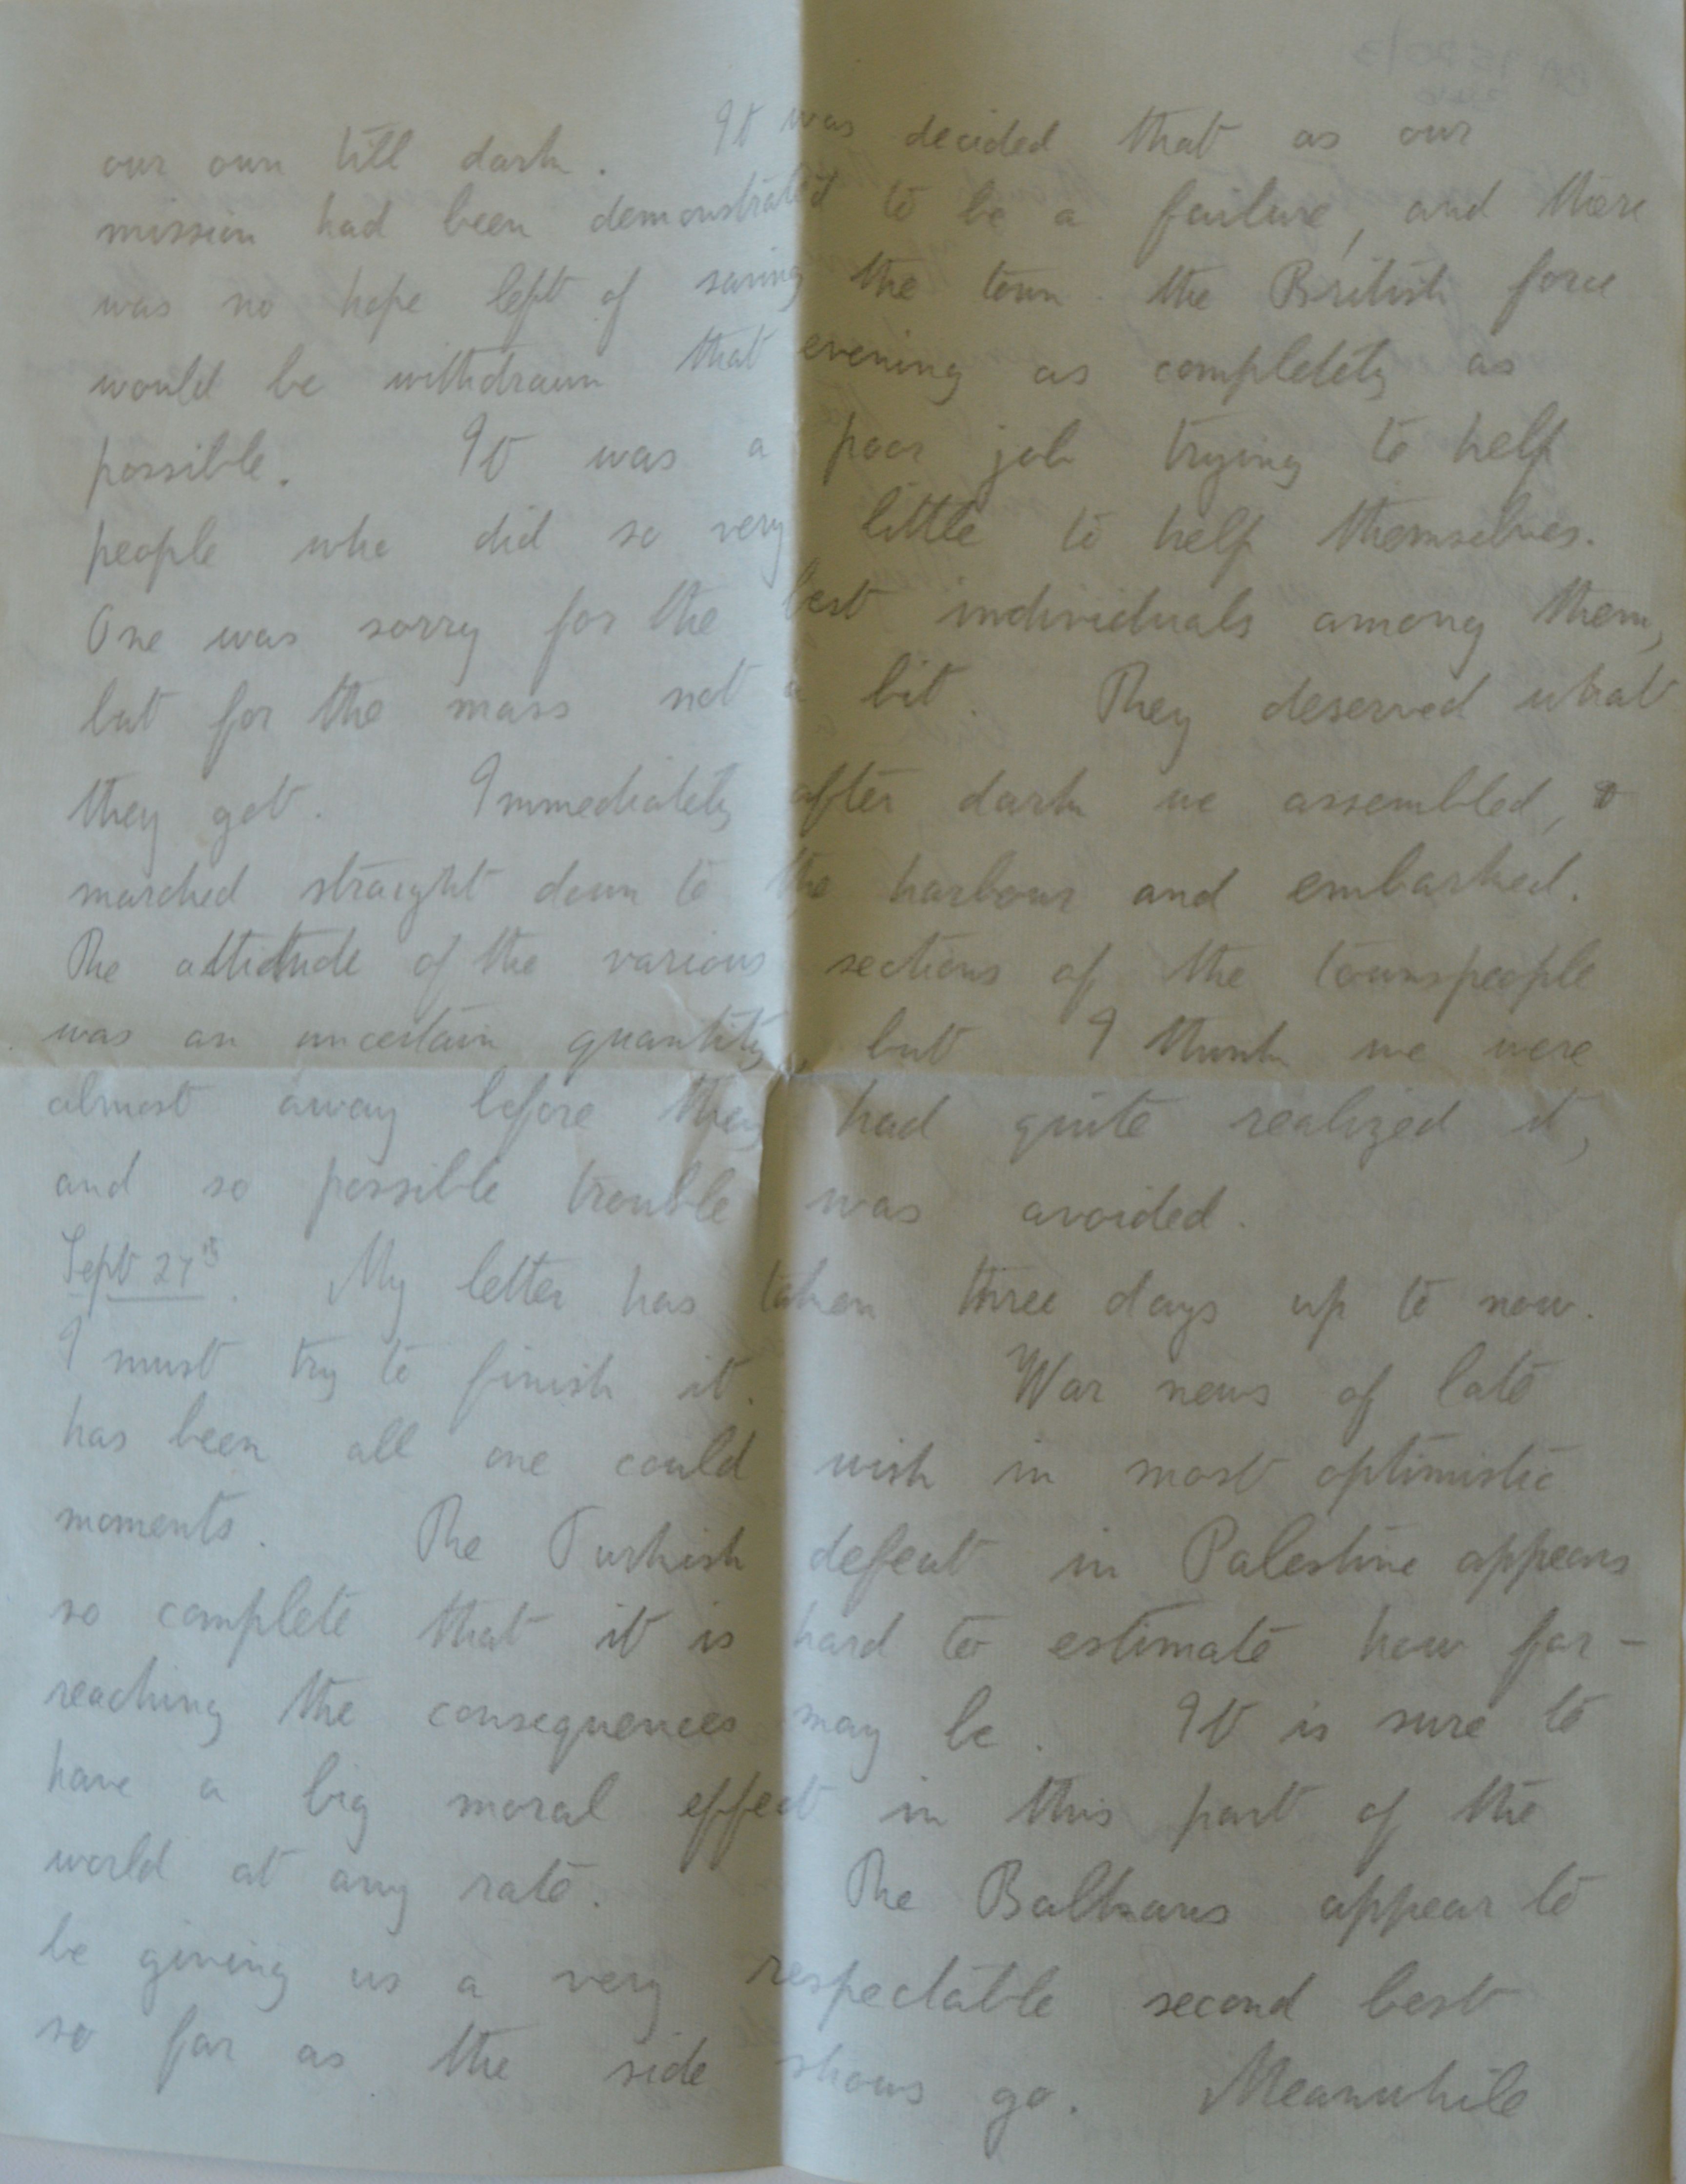 our own till dark. It was decided that as our
mission had been demonstrated to be a failure, and there
was no hope left of saving the town. the British force
would be withdrawn that evening as completely as
possible. It was a poor job trying to help
people who did so very little to help themselves.
One was sorry for the best individuals among them,
but for the mass not a bit. They deserved what
they got. Immediately after dark we assembled, &
marched straight down to the harbour and embarked.
The attitude of the various sections of the townspeople
was an uncertain quantity, but I think we were
almost away before they had quite realized it,
and so possible trouble was avoided.
Sept 27th. My letter has taken three days up to now.
I must try to finish it. War news of late
has been all one could wish in most optimistic
moments. The Turkish defeat in Palestine appears
so complete that it is hard to estimate how far-
reaching the consequences may be. It is sure to
have a big moral effect in this part of the
world at any rate. The Balkans appear to
be giving us a very respectable second best
so far as the side shows go. Meanwhile